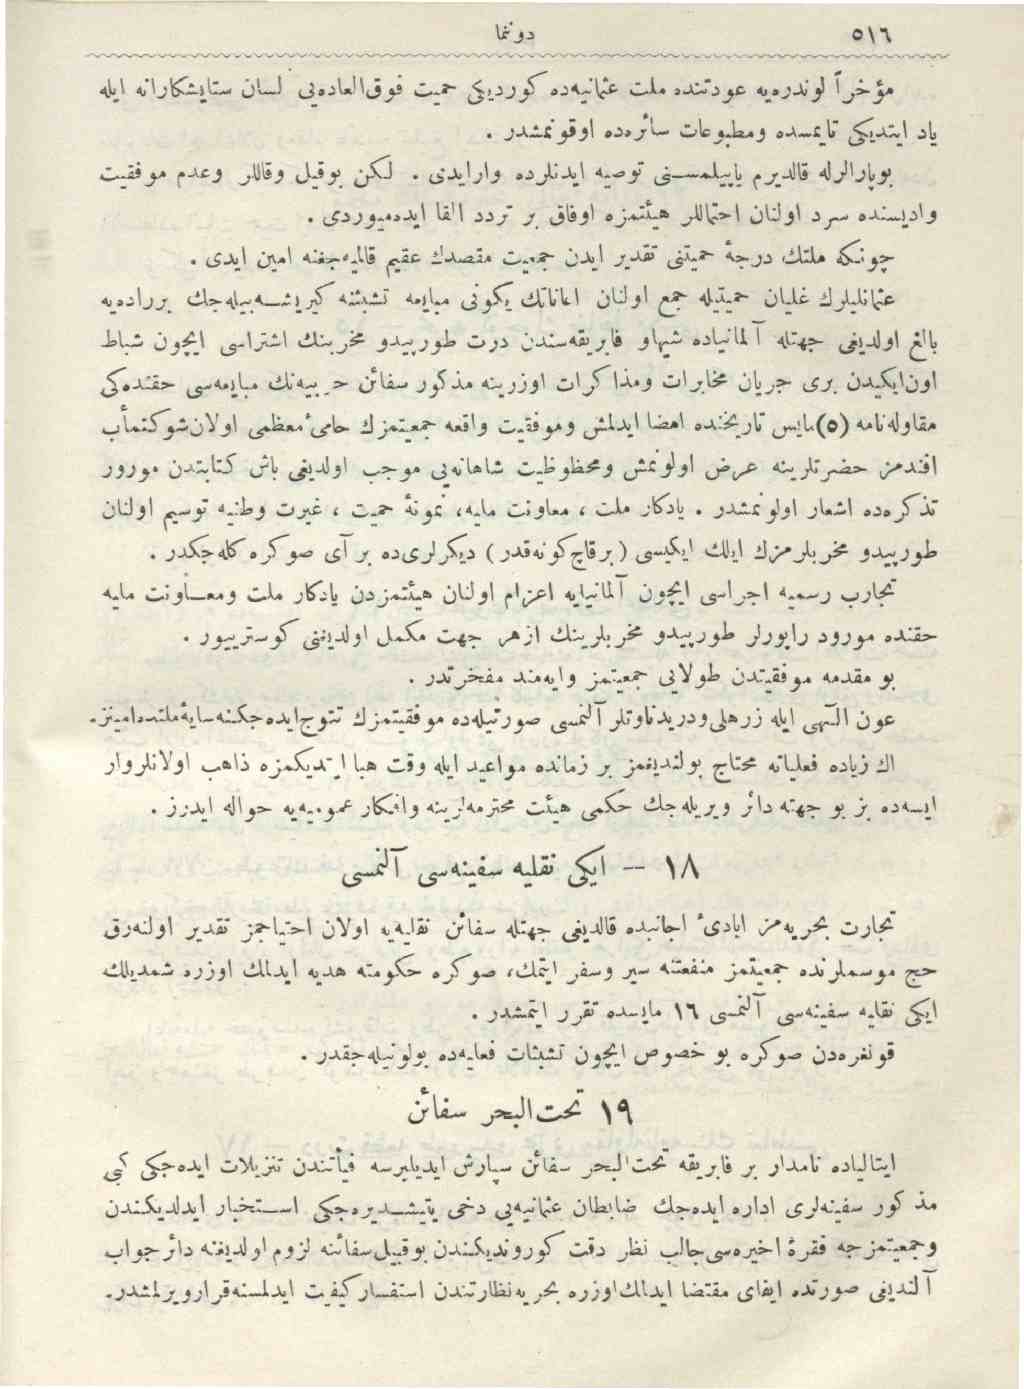 ٥١٦
دوننما
مؤخراً لوندره‌یه عودتنده ملت عثمانیه‌ده کوردیکی حمیت فوق‌العاده‌یی لسان ستایشکارانه ایله
یاد ایتدیکی تایمسده ومطبوعات سائره‌ده اوقونمشدر .
بوپارالرله قالدیرم یاپیلمسنی توصیه ایدنلرده وارایدی . لکن بوقیل وقاللر وعدم موفقیت
وادیسنده سرد اولنان احتماللر هیئتمزه اوفاق بر تردد القا ایده‌میوردی .
چونکه ملتك درجۀ حمیتنی تقدیر ایدن جمعیت مقصدك عقیم قالمیه‌جغنه امین ایدی .
عثمانلیلرك غلیان حمیتیله جمع اولنان اعاناتك یکونی مبایعه تشبثنه کیریشه‌بیله‌جك برراده‌یه
بالغ اولدیغی جهتله آلمانیاده شیهاو فابریقه‌سندن درت طورپیدو مخربنك اشتراسی ایچون شباط
اون‌ایکیدن بری جریان مخابرات ومذاکرات اوزرینه مذکور سفائن حربیه‌نك مبایعه‌سی حقنده‌کی
مقاوله‌نامه (٥) مایس تاریخنده امضا ایدلمش وموفقیت واقعه جمعیتمزك حامیٔ معظمی اولان‌شوکتمآب
افندمز حضرتلرینه عرض اولونمش ومحظوظیت شاهانه‌یی موجب اولدیغی باش کتابتدن مورور
تذکره‌ده اشعار اولونمشدر . یادکار ملت ، معاونت ملیه، نمونۀ حمیت ، غیرت وطنیه توسیم اولنان
طورپیدو مخربلرمزك ایلك ایکیسی (برقاچ‌کونه‌قدر) دیکرلری‌ده بر آی صوکره کله‌جکدر .
تجارب رسمیه اجراسی ایچون آلمانیایه اعزام اولنان هیئتمزدن یادکار ملت ومعاونت ملیه
حقنده مورود راپورلر طورپیدو مخربلرینك ازهر جهت مکمل اولدیغنی کوستریيور .
بو مقدمه موفقیتدن طولایی جمعیتمز وایه‌مند مفخرتدر .
عون الـٓهی ایله زرهلی‌ودریدناوتلر آلنمسی صورتیله‌ده موفقیتمزك تتوج‌ایده‌جکنه‌سایۀملتده‌امینز.
اك زیاده فعلیاته محتاج بولندیغمز بر زمانده مواعید ایله وقت هبا ایتدیکمزه ذاهب اولانلروار
ایسه‌ده بز بو جهته دائر ویریله‌جك حکمی هیئت محترمه‌لرینه وافکار عمومیه‌یه حواله ایدرز .
١٨ — ایکی نقلیه سفینه‌سی آلنمسی
تجارت بحریه‌مز ایادیٔ اجانبده قالدیغی جهتله سفائن نقلیه‌یه اولان احتیاجمز تقدیر اولنه‌رق
حج موسملرنده جمعیتمز منفعتنه سیر وسفر ایتمك، صوکره حکومته هدیه ایدلمك اوزره شمدیلك
ایکی نقلیه سفینه‌سی آلنمسی ١٦ مایسده تقرر ایتمشدر .
قونغره‌دن صوکره بو خصوص ایچون تشبثات فعلیه‌ده بولونیله‌جقدر .
١٩ تحت‌البحر سفائن
ایتالیاده نامدار بر فابریقه تحت‌البحر سفائن سپارش ایدیلیرسه فیأتندن تنزیلات ایده‌جکی کبی
مذکور سفینه‌لری اداره ایده‌جك ضابطان عثمانیه‌یی دخی یتیشدیره‌جکی استخبار ایدلدیکندن
وجمعیتمزجه فقرۀ اخیره‌سی‌جالب نظر دقت کوروندیکندن بوقبیل‌سفائنه لزوم اولدیغنه دائرجواب
آلندیغی صورتده ایفای مقتضا ایدلمك‌اوزره بحریه‌نظارتندن استفسارکیفیت ایدلمسنه‌قرارویرلمشدر.